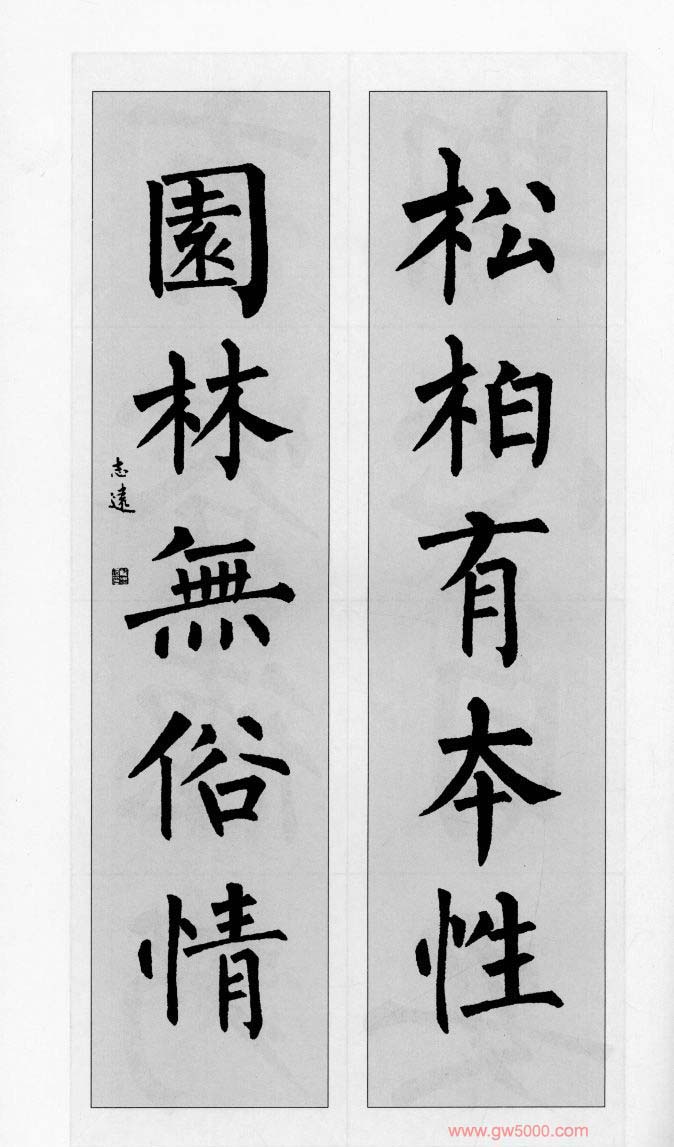 松柏有本性
園林無俗情
志遠
www.gw5000.com